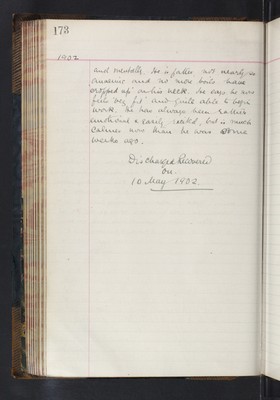 173
1902
and mentally. He is fatter not nearly so
anaemic and no more boils have
cropped up on his neck. He says he now
feels very fit and quite able to begin
work. He has always been rather
& easily excited, but is much
calmer now than he was some
weeks ago.
Discharged Recovered
on
10 May 1902